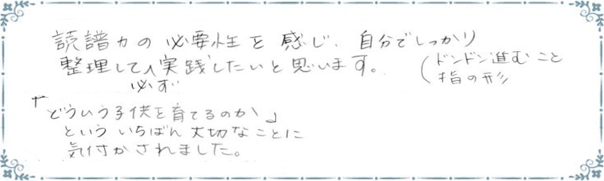 読譜力の必要性を感じ、自分でしっかり
整理して必ず実践したいと思います。(ドンドン進むこと
指の形
「どういう子供を育てるのか」
といういちばん大切なことに
気付かされました。